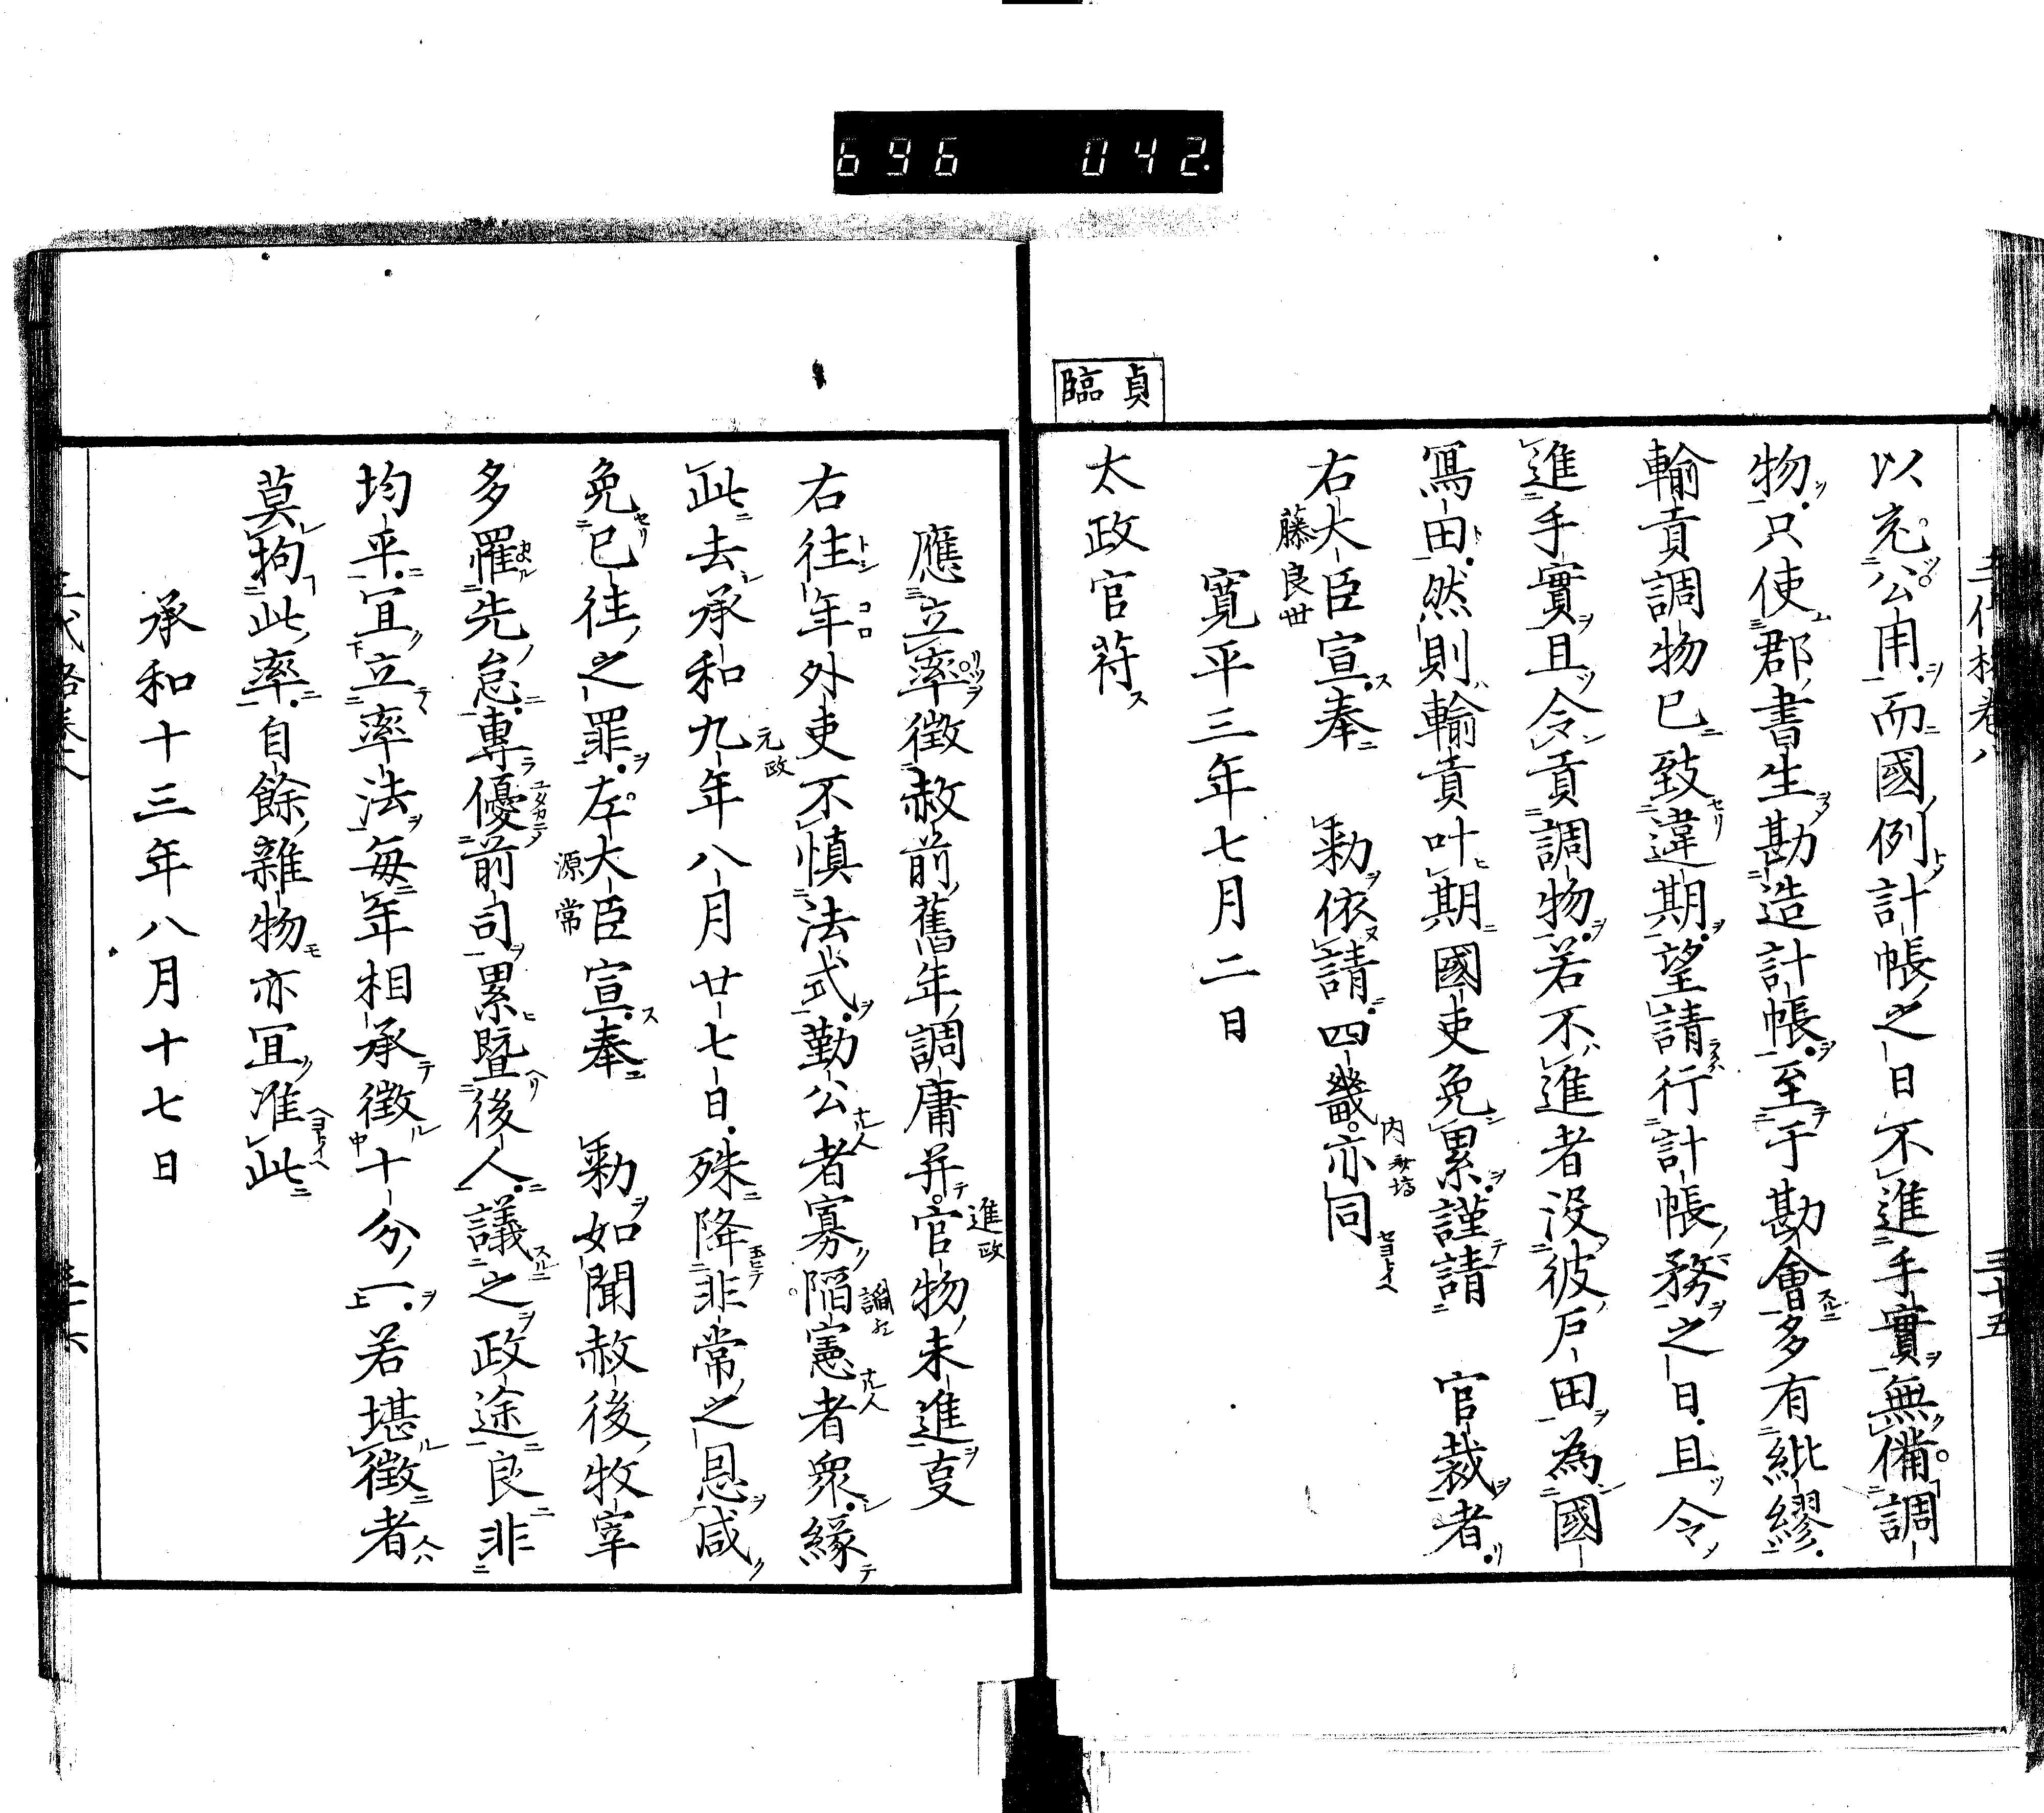 696 042.
貞臨
以充公用而國例計帳之日不進手實無備調
物只使郡書生勘造計帳至于勘會多有紕繆
輸貢調物已致違期望請行計帳務之日且令
進手實且令貢調物若不進者没彼戸田為國
寫田然則輸貢叶期國吏免累謹請 官裁者
右大臣宣奉 勅依請四畿亦同
藤良世
寛平三年七月二日
太政官符
應立率徴赦前舊年調庸并官物未進叓
進政
右往年外吏不慎法式勤公者寡陷憲者衆縁
此去承和九年八月廿七日殊降非常之恩咸
元政
免已往之罪左大臣宣奉 勅如聞赦後牧宰
源常
多罹先怠專優前司累曁後人議之政途良非
均平冝立率法毎年相承徴十分一若堪徴者
莫拘此率自餘雜物亦冝准此
承和十三年八月十七日